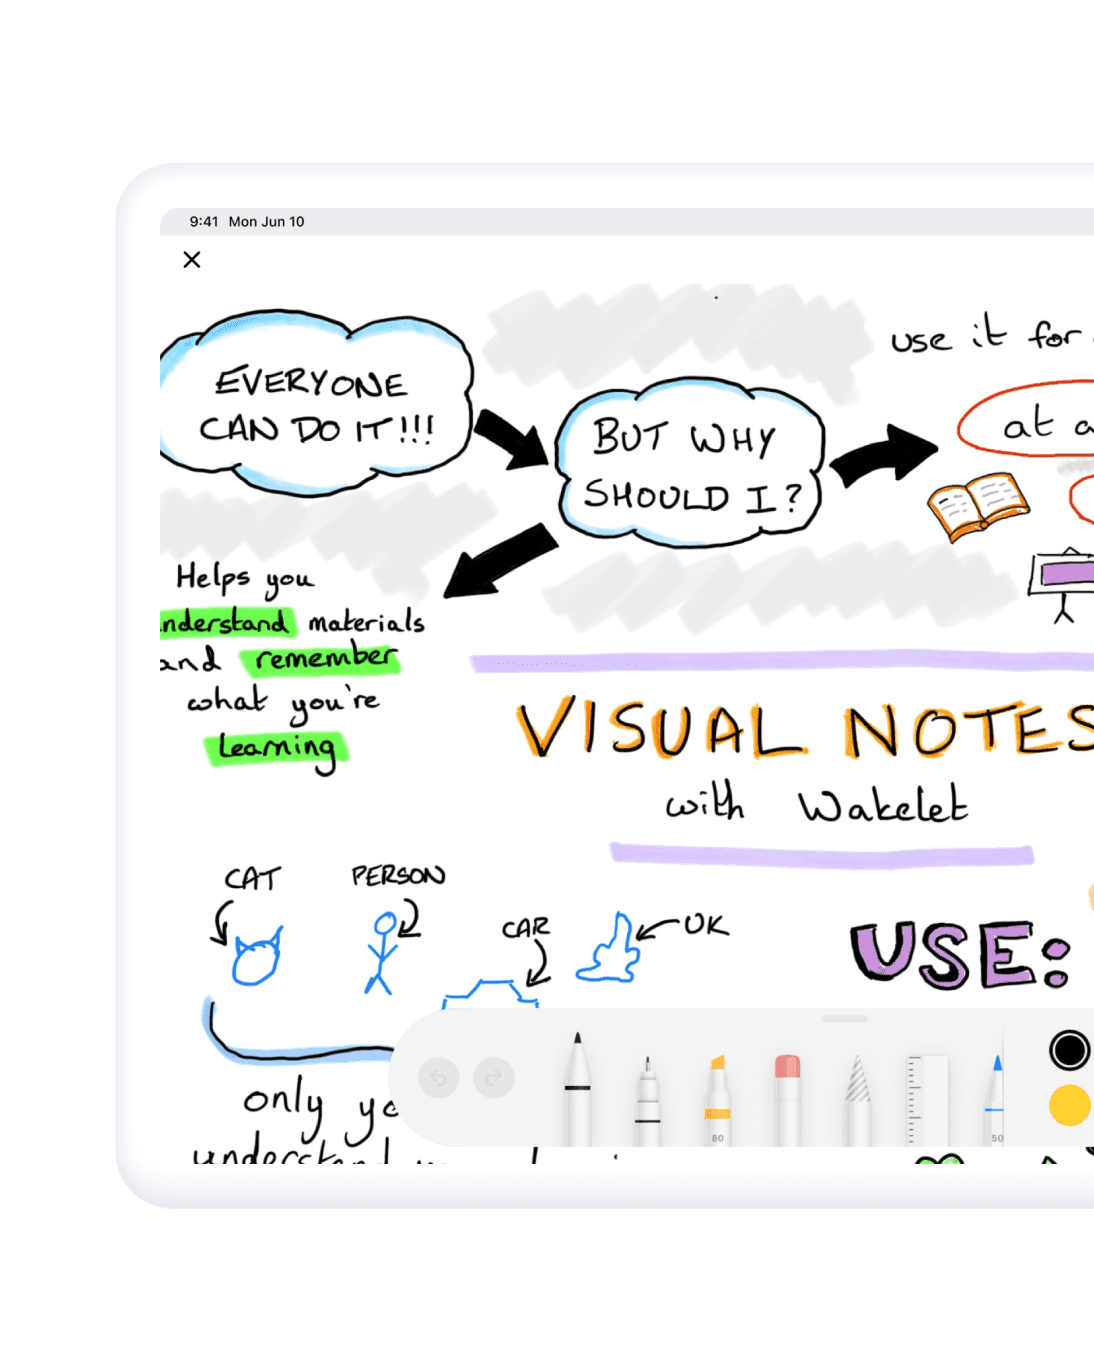 9:41 Mon Jun 10
EVERYONE
CAN DO IT!!!
BUT WHY
SHOULD I?
use it for
at a
Helps you
nderstand materials
and remember
what you're
learning
VISUAL NOTES
with Wakelet
CAT
PERSON
CAR
UK
USE:
only yo
understand
80
50